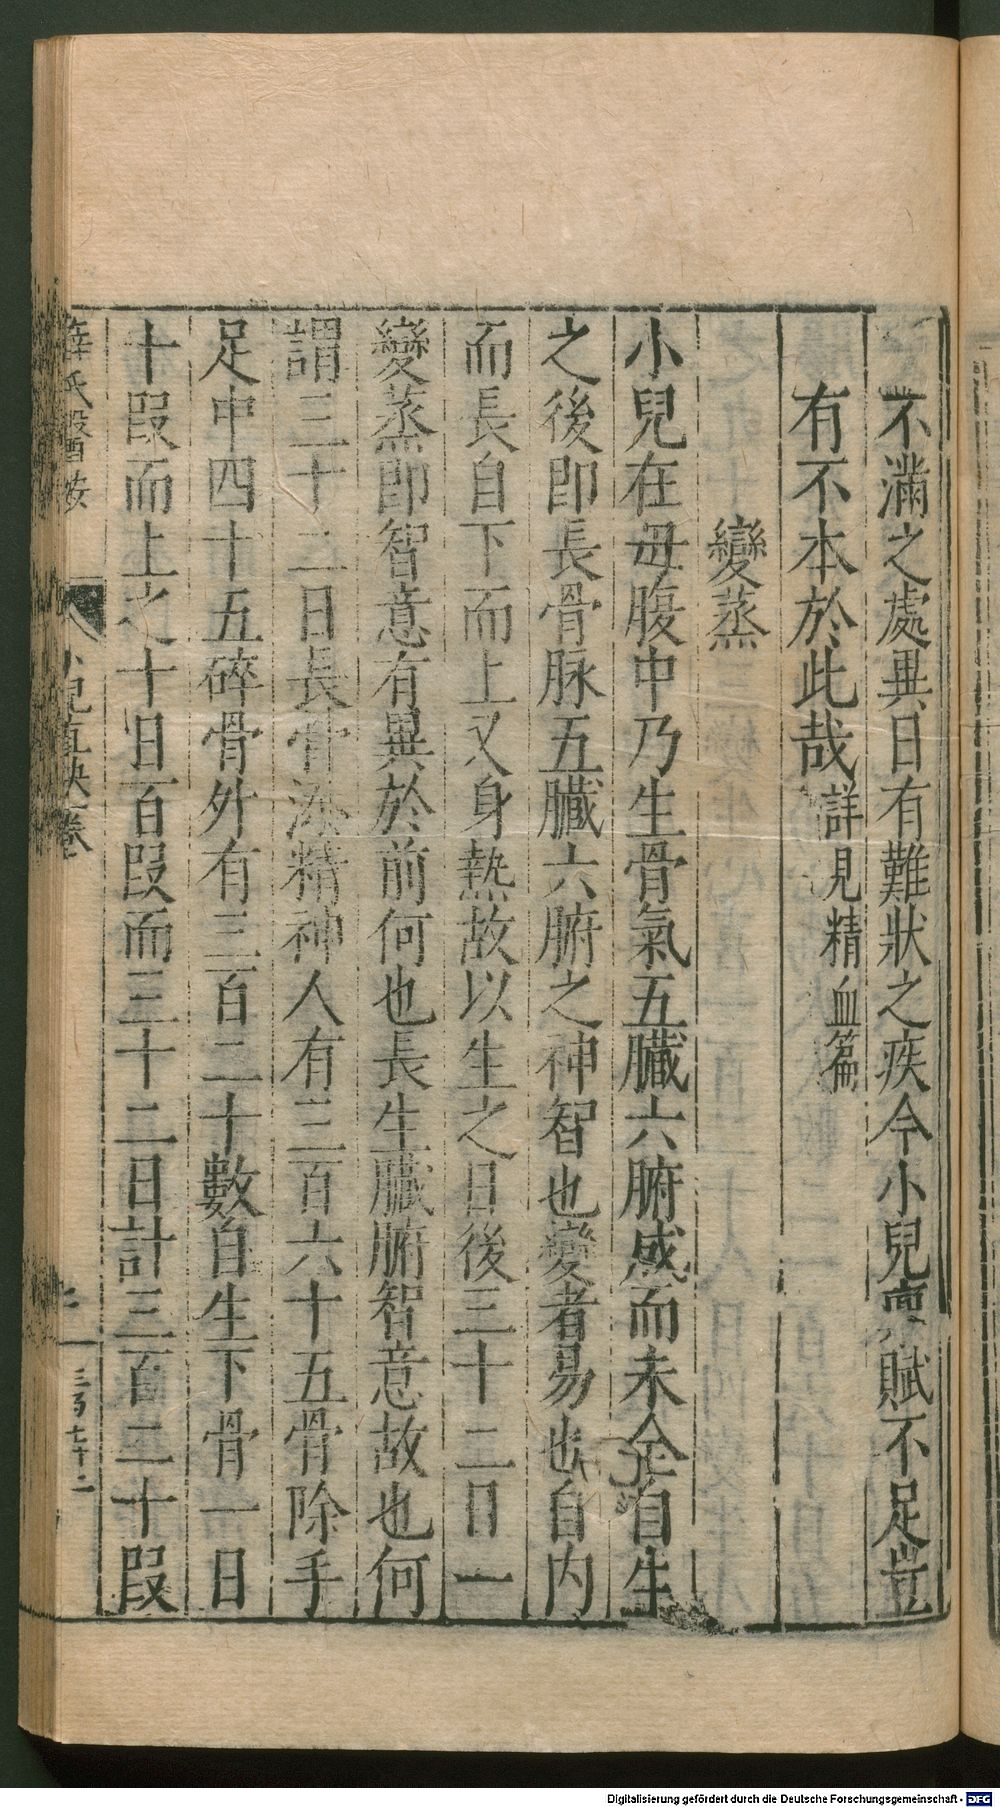 不滿之處異日有難狀之疾今小兒稟賦不足豈
有不本於此哉詳見精血篇
變蒸
小兒在母腹中乃生骨氣五臟六腑感而未全自生
之後即長骨脉五臟六腑之神智也變者易也自内
而長自下而上又身熱故以生之日後三十二日一
變蒸即智意有異於前何也長生臟腑智意故也何
謂三十二日長骨添精神人有三百六十五骨除手
足中四十五碎骨外有三百二十數自生下骨一日
十叚而上之十日百叚而三十二日計三百二十叚
薛氏醫按 小兒直訣卷 三百七十二
Digitalisierung gefördert durch die Deutsche Forschungsgemeinschaft - DFG